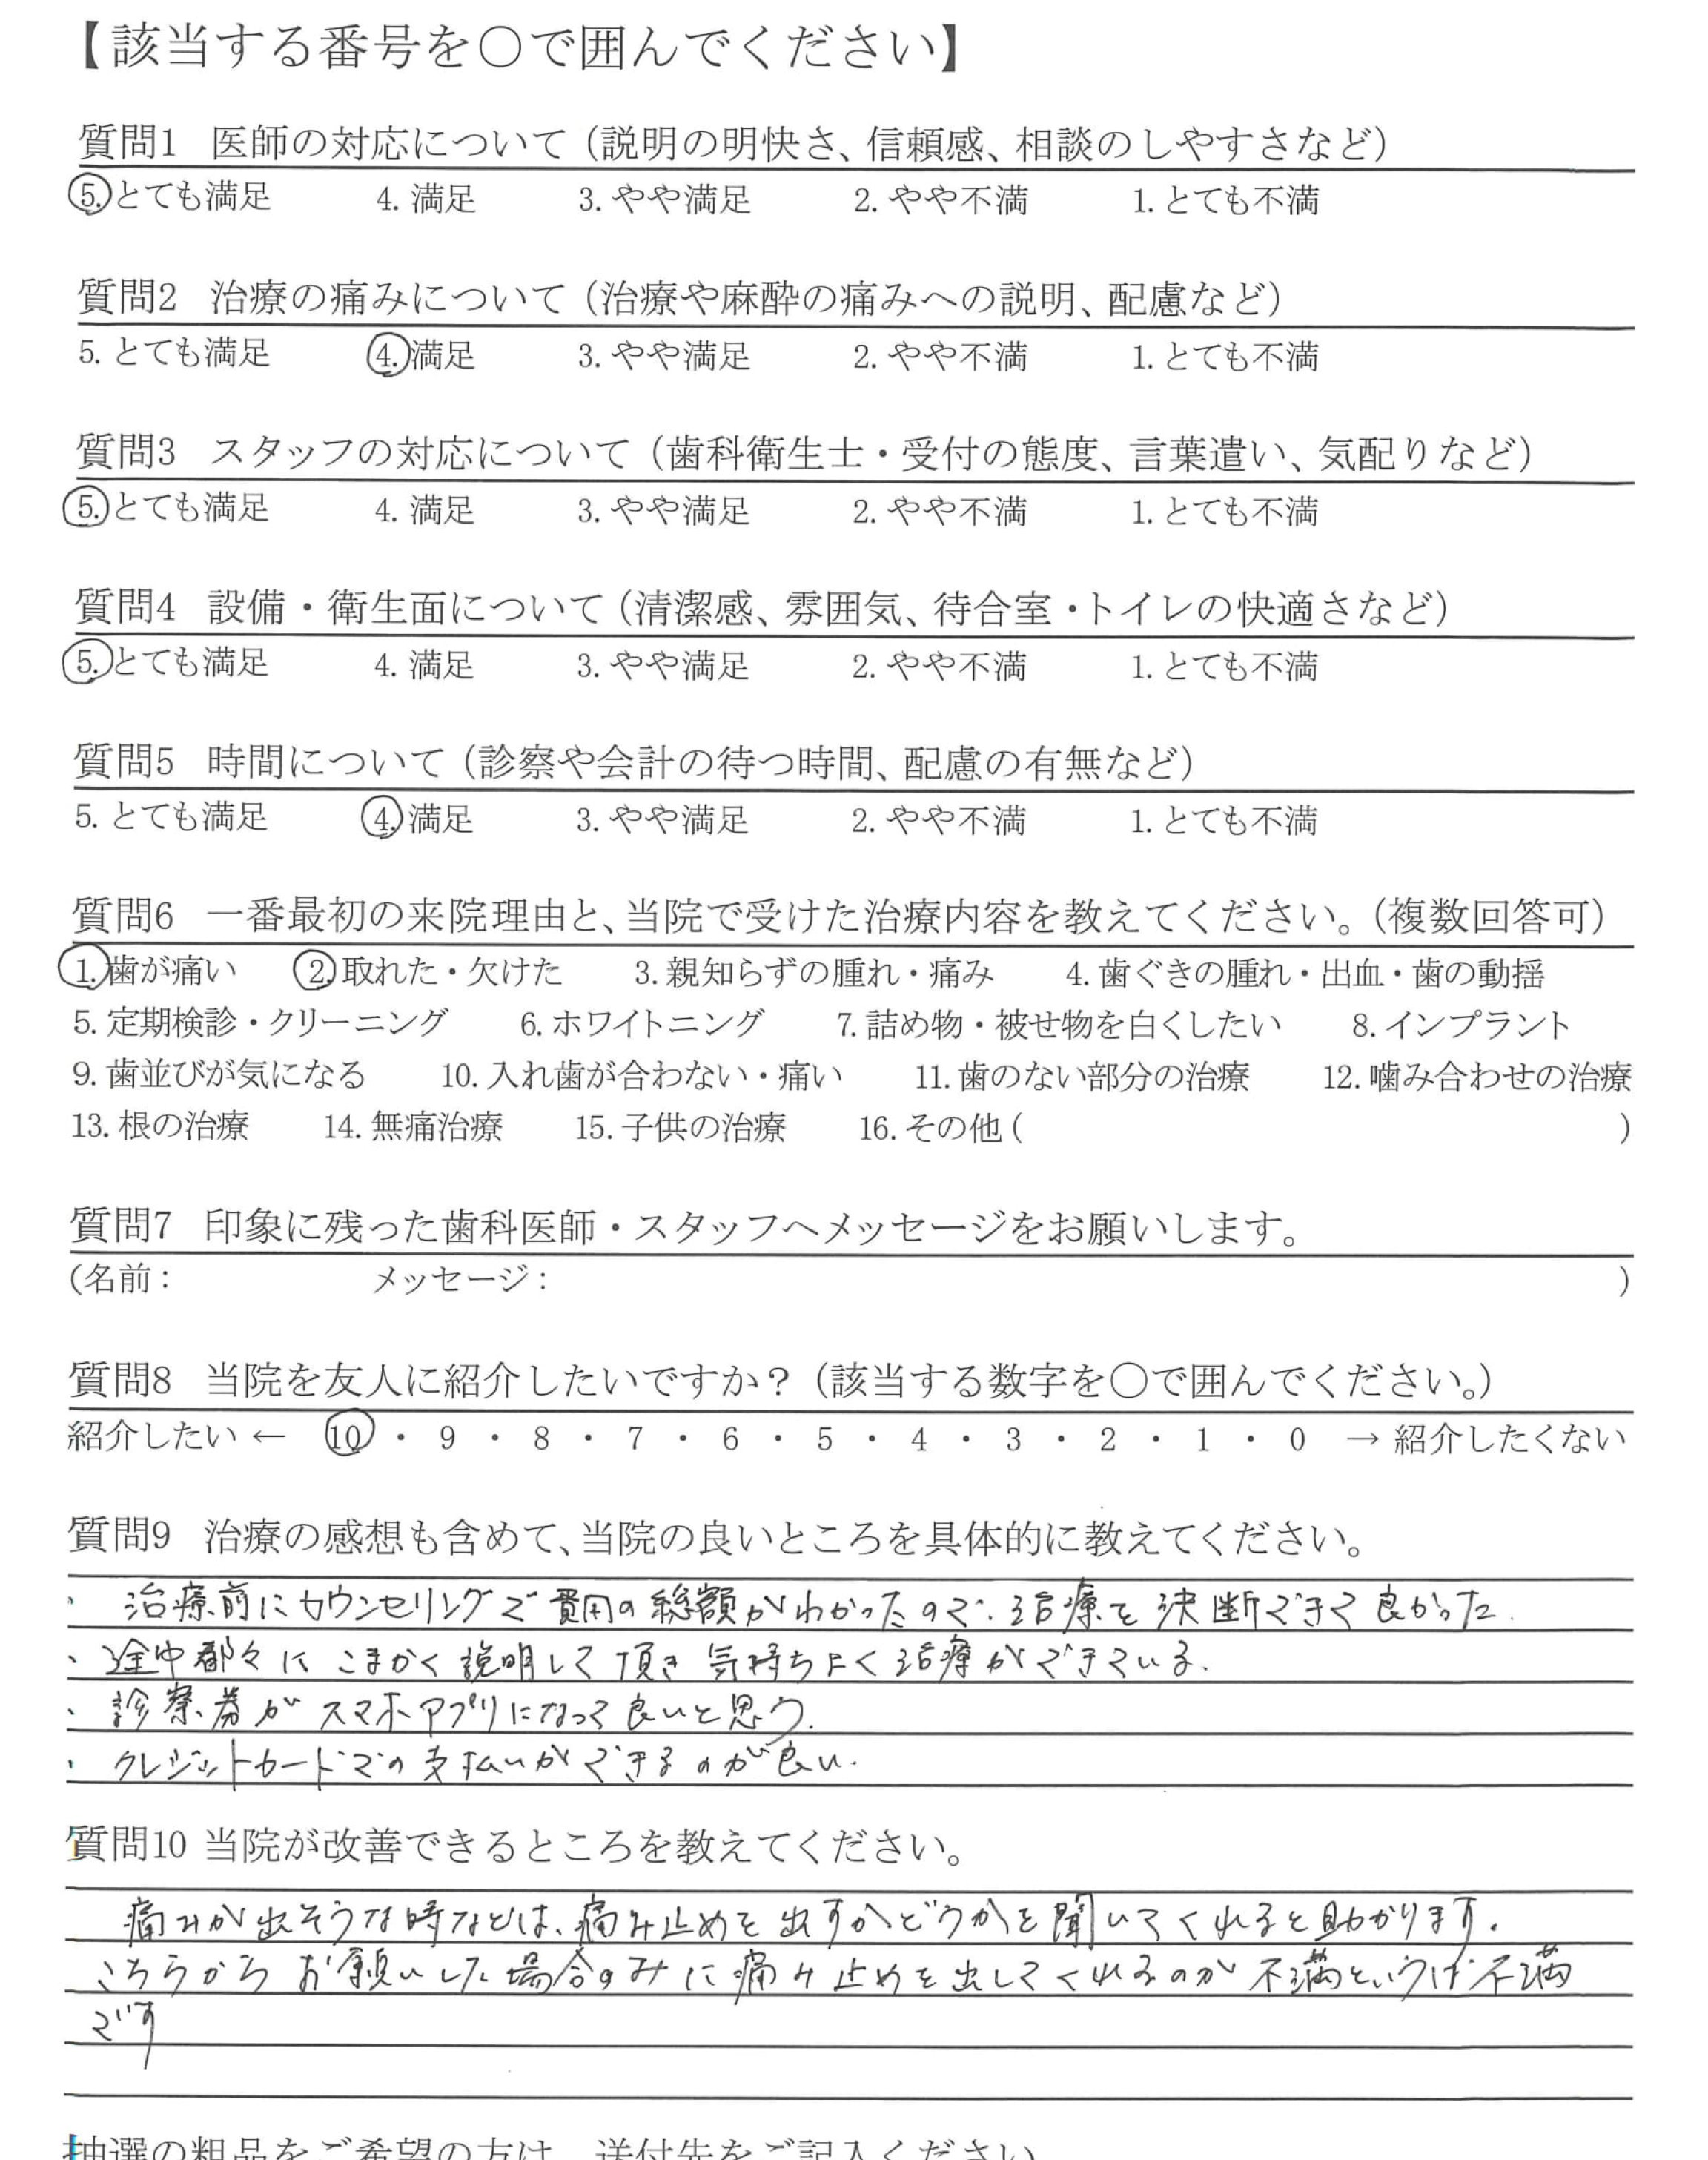 【該当する番号を○で囲んでください】
質問1 医師の対応について（説明の明快さ、信頼感、相談のしやすさなど）
5. とても満足 4. 満足 3. やや満足 2. やや不満 1. とても不満
質問2 治療の痛みについて（治療や麻酔の痛みへの説明、配慮など）
5. とても満足 4. 満足 3. やや満足 2. やや不満 1. とても不満
質問3 スタッフの対応について（歯科衛生士・受付の態度、言葉遣い、気配りなど）
5. とても満足 4. 満足 3. やや満足 2. やや不満 1. とても不満
質問4 設備・衛生面について（清潔感、雰囲気、待合室・トイレの快適さなど）
5. とても満足 4. 満足 3. やや満足 2. やや不満 1. とても不満
質問5 時間について（診察や会計の待つ時間、配慮の有無など）
5. とても満足 4. 満足 3. やや満足 2. やや不満 1. とても不満
質問6 一番最初の来院理由と、当院で受けた治療内容を教えてください。（複数回答可）
1. 歯が痛い 2. 取れた・欠けた 3. 親知らずの腫れ・痛み 4. 歯ぐきの腫れ・出血・歯の動揺
5. 定期検診・クリーニング 6. ホワイトニング 7. 詰め物・被せ物を白くしたい 8. インプラント
9. 歯並びが気になる 10. 入れ歯が合わない・痛い 11. 歯のない部分の治療 12. 噛み合わせの治療
13. 根の治療 14. 無痛治療 15. 子供の治療 16. その他（ ）
質問7 印象に残った歯科医師・スタッフへメッセージをお願いします。
（名前： メッセージ： ）
質問8 当院を友人に紹介したいですか？（該当する数字を○で囲んでください。）
紹介したい ← 10 ・ 9 ・ 8 ・ 7 ・ 6 ・ 5 ・ 4 ・ 3 ・ 2 ・ 1 ・ 0 → 紹介したくない
質問9 治療の感想も含めて、当院の良いところを具体的に教えてください。
・ 治療前にカウンセリングで費用の総額がわかったので、治療を決断できて良かった.
・ 途中都々にこまかく説明して頂き気持ちよく治療ができている.
・ 診察券がスマホアプリになって良いと思う.
・ クレジットカードでの支払いができるのが良い.
質問10 当院が改善できるところを教えてください。
痛みが出そうな時などは、痛み止めを出すかどうかを聞いてくれると助かります.
こちらからお願いした場合のみに痛み止めを出してくれるのが不満といえば不満
です
抽選の粗品をご希望の方は、送付先をご記入ください